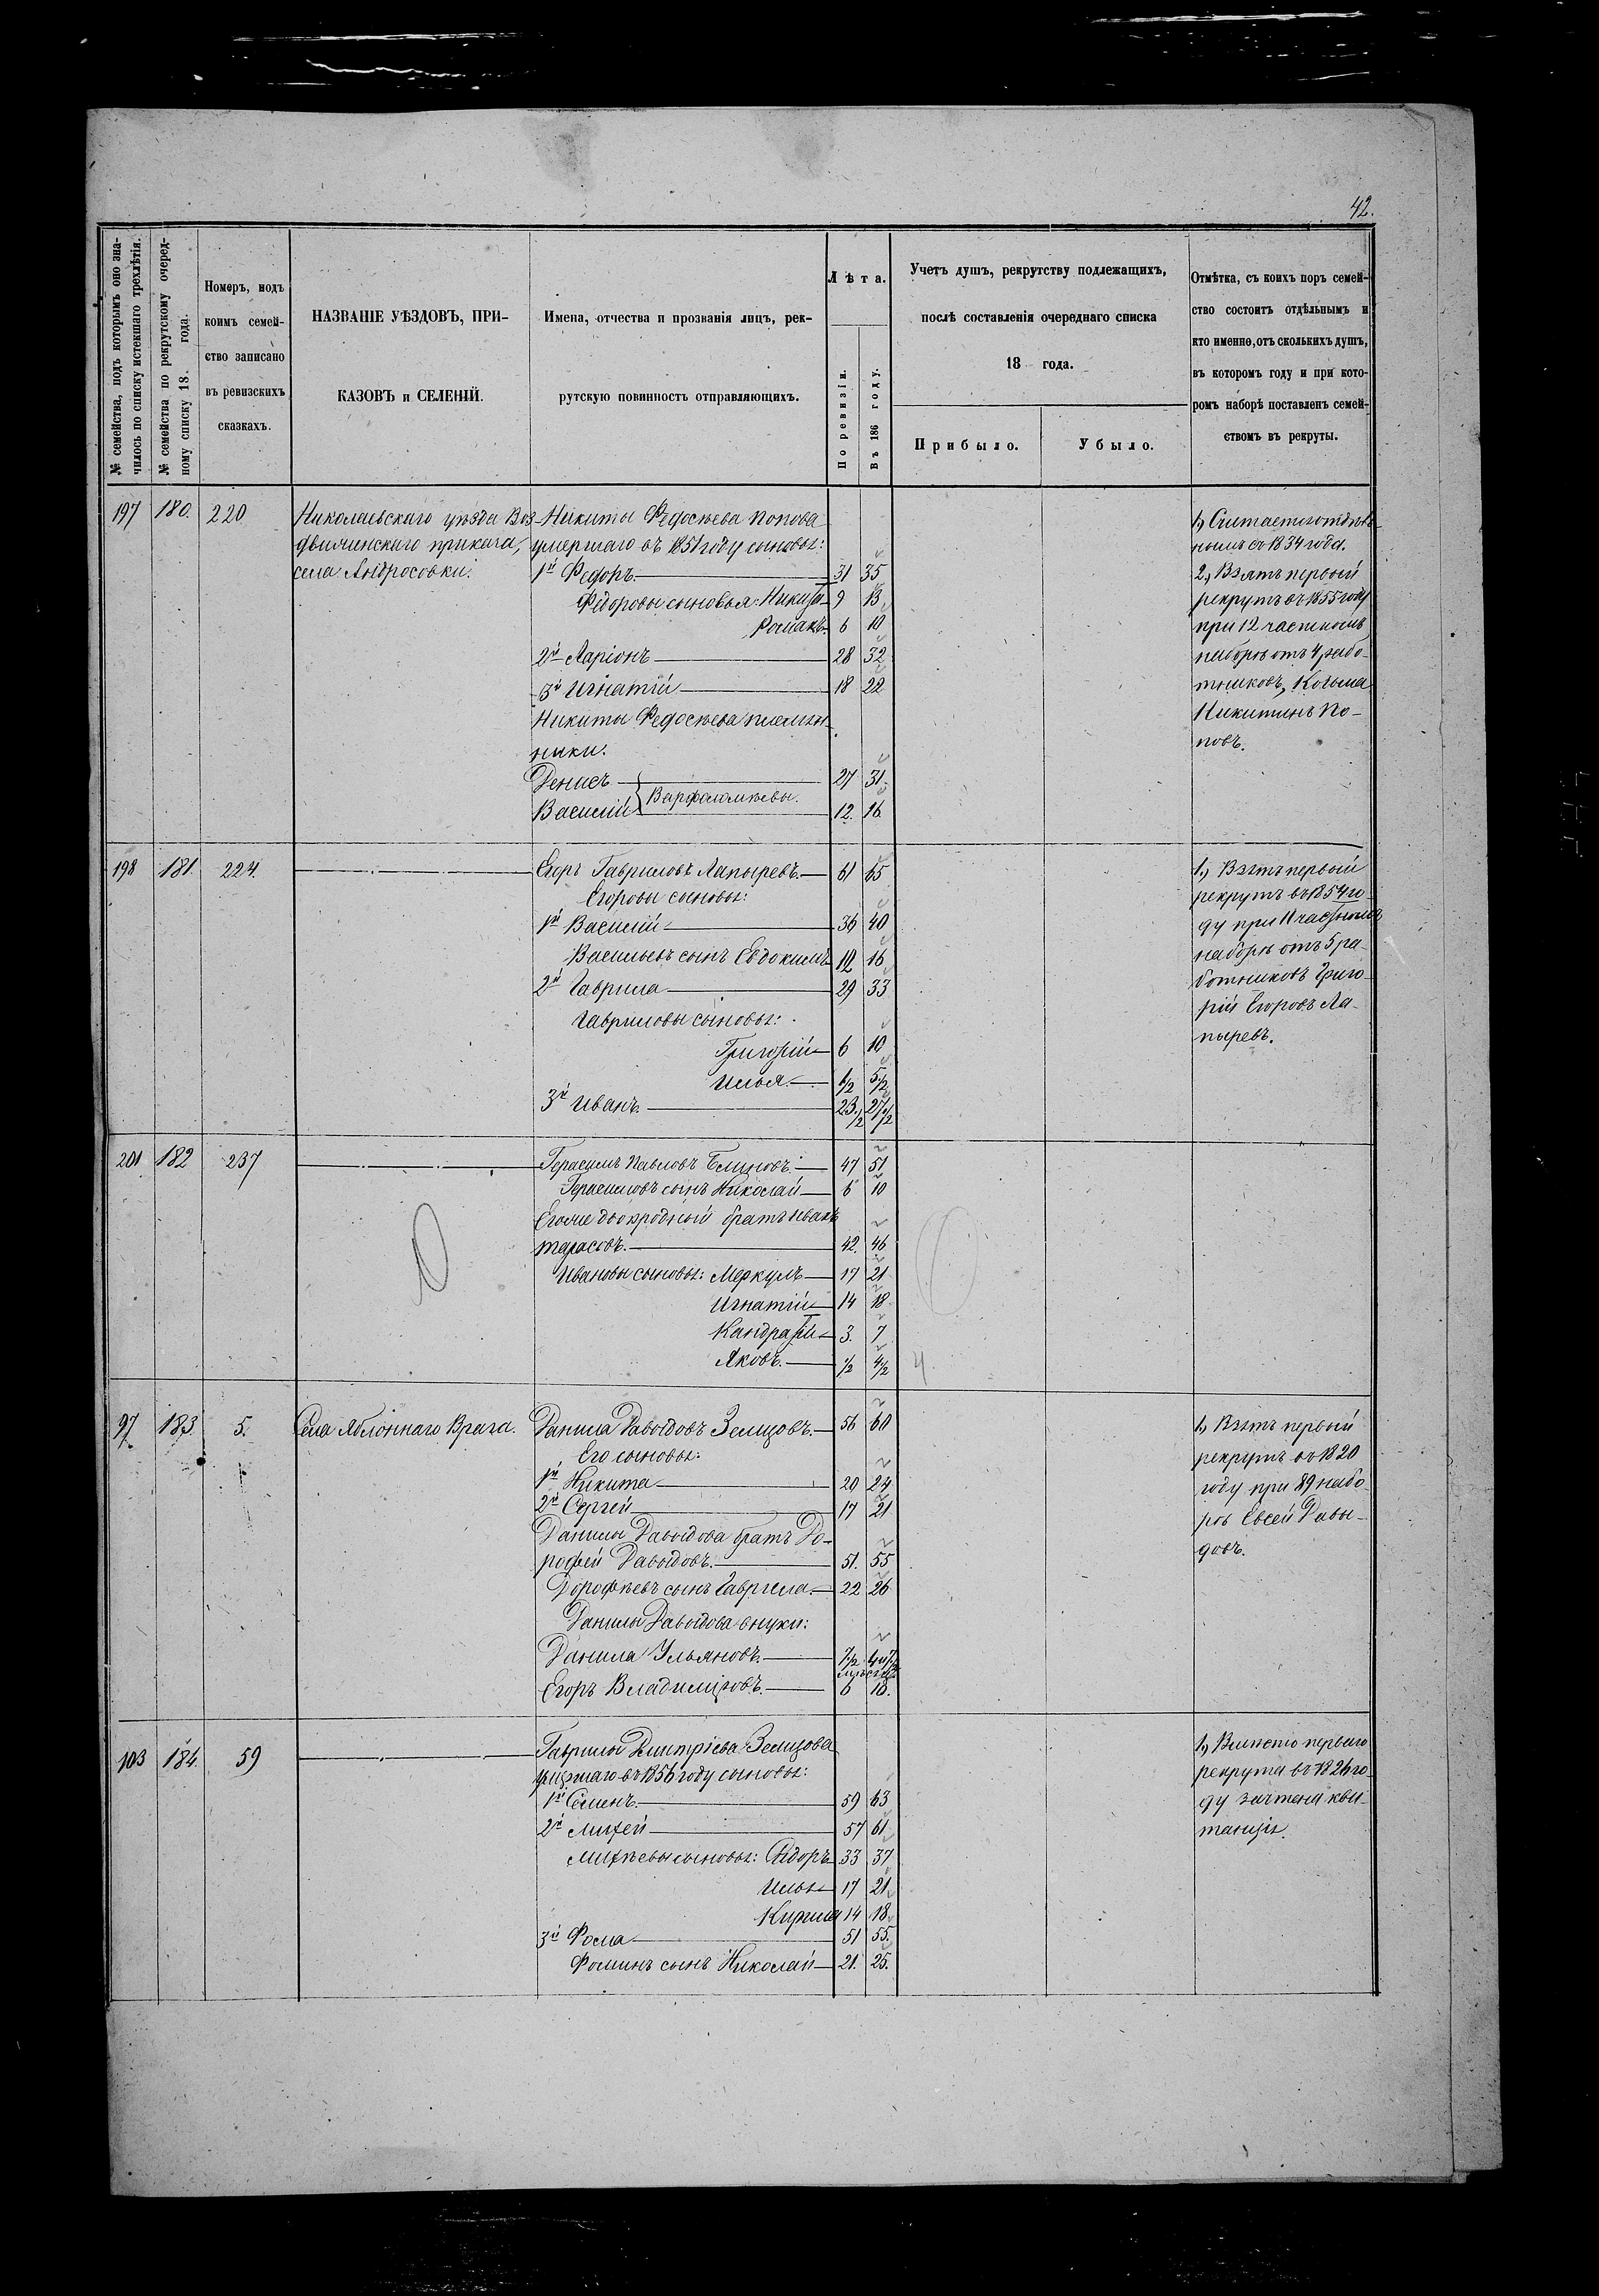 42.
№ семейства, подъ которымъ оно зна-
чилось по списку истекшаго трехлѣтія.
№ семейства по рекрутскому очеред-
ному списку 18. года.
Номеръ, подъ
коимъ семей-
ство записано
въ ревизскихъ
сказкахъ.
НАЗВАНІЕ УѢЗДОВЪ, ПРИ-
КАЗОВЪ и СЕЛЕНІЙ.
Имена, отчества и прозванія лицъ, рек-
рутскую повинность отправляющихъ.
Лѣта.
По ревизіи.
Въ 186 году.
Учетъ душъ, рекрутству подлежащихъ,
послѣ составленія очереднаго списка
18 года.
Прибыло.
Убыло.
Отмѣтка, съ коихъ поръ семей-
ство состоитъ отдѣльнымъ и
кто именно, отъ сколькихъ душъ,
въ которомъ году и при кото-
ромъ наборѣ поставленъ семей-
ствомъ въ рекруты.
197 180. 220
Николаевскаго уѣзда Воз-
движенскаго приказа,
села Андросовки.
Никиты Федосѣева Попова
умершаго въ 1851 году сыновья:
1й Федоръ. 31 35
Федоровы сыновья: Никита 9 13
Романъ. 6 10
2й Ларіонъ 28 32
3й Игнатій 18 22
Никиты Федосѣева племян-
ники.
Денисъ 27 31.
Варфоломѣевы.
Василій 12. 16
1, Считается отдѣль-
нымъ съ 1834 года.
2, Взятъ первый
рекрутъ въ 1855 году
при 12 частномъ
наборѣ отъ 4 рабо-
тниковъ, Козьма
Никитинъ По-
повъ.
198 181. 224.
Егоръ Гавриловъ Лапыревъ. 61 65
Егоровы сыновья:
1й Василій 36 40
Васильевъ сынъ Евдокимъ 12 16
2й Гаврила 29 33
Гавриловы сыновья:
Григорій 6 10
Илья. 1/2 5/2
3й Иванъ. 23.1/2 27 1/2
1, Взятъ первый
рекрутъ въ 1854 го-
ду при 11 частномъ
наборѣ отъ 5 ра-
ботниковъ Григо-
рій Егоровъ Ла-
пыревъ.
201 182 237
Герасимъ Павловъ Блиновъ. 47 51
Герасимовъ сынъ Николай 6 10
Егоже двоюродный братъ Иванъ
Тарасовъ. 42. 46
Ивановы сыновья: Меркулъ 17 21
Игнатій 14 18
Кандратій 3. 7
Яковъ. 1/2 4/2
4
97 183. 5.
Села Яблоннаго Врага.
Данила Давыдовъ Земцовъ. 56 60
Его сыновья:
1й Никита 20 24
2й Сергей 17 21
Данилы Давыдова братъ До-
рофей Давыдовъ. 51. 55
Дорофѣевъ сынъ Гаврила. 22 26
Данилы Давыдова внуки:
Данила Ульяновъ.
Егоръ Владиміровъ. 6 10.
1, Взятъ первый
рекрутъ въ 1820
году при 89 набо-
рѣ Евсей Давы-
довъ.
103 184. 59
Гаврилы Дмитріева Земцова
умершаго въ 1856 году сыновья:
1й Семенъ. 59 63
2й Михей 57 61
Михѣевы сыновья: Федоръ 33 37
Илья 17 21
Кирила 14 18
3й Фома 51 55.
Фоминъ сынъ Николай 21. 25.
1, Вмѣсто перваго
рекрута въ 1826 го-
ду зачтена кви-
танція.